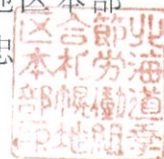 地区本部
北海道季
節労働組
合札幌地
区本部印